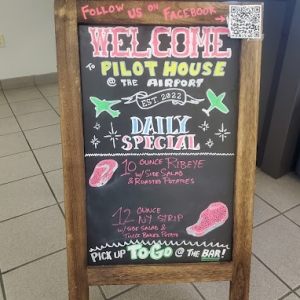 FOLLOW US ON FACEBOOK
WELCOME
TO PILOT HOUSE
@ THE AIRPORT
EST. 2022
DAILY
SPECIAL
10 OUNCE RIBEYE
W/ SIDE SALAD
& ROASTED POTATOES
12 OUNCE
NY STRIP
W/ SIDE SALAD &
TWICE BAKED POTATO
PICK UP TO GO @ THE BAR!